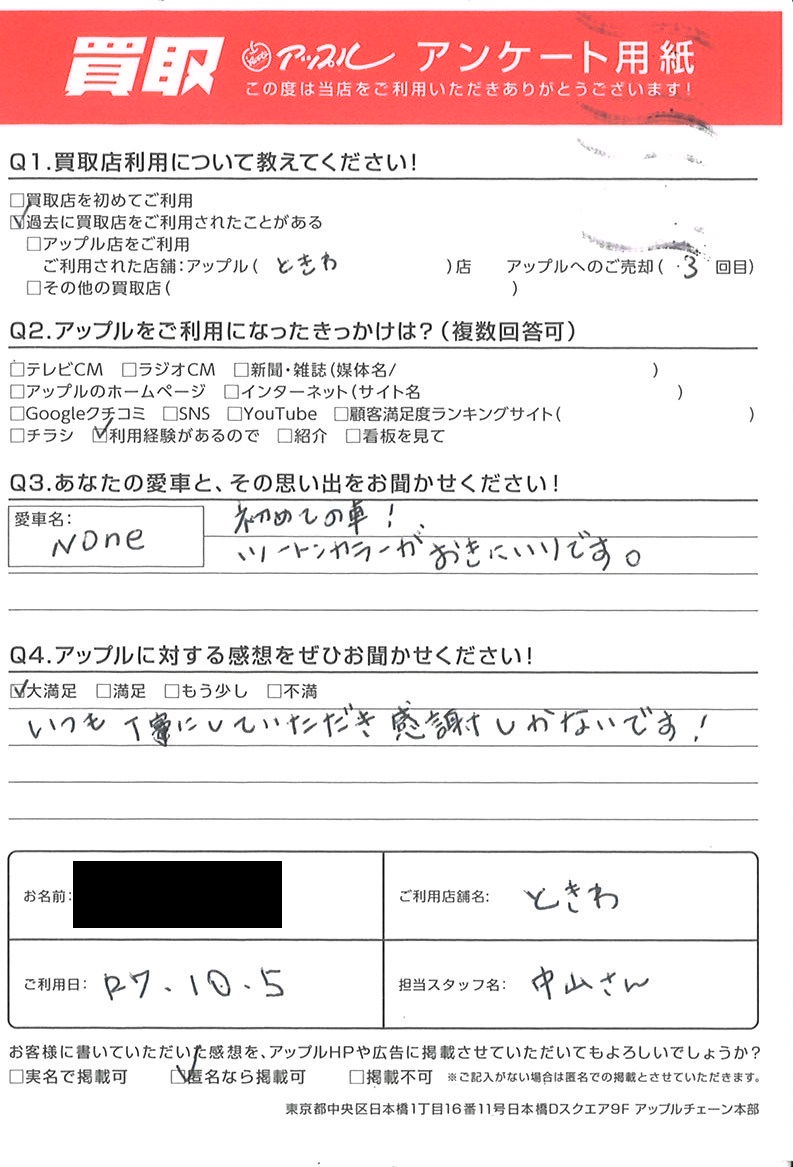 買取 アップル アンケート用紙
この度は当店をご利用いただきありがとうございます!
Q1.買取店利用について教えてください!
□買取店を初めてご利用
☑過去に買取店をご利用されたことがある
□アップル店をご利用
ご利用された店舗:アップル( ときわ )店 アップルへのご売却( 3 回目)
□その他の買取店( )
Q2.アップルをご利用になったきっかけは?(複数回答可)
□テレビCM □ラジオCM □新聞・雑誌(媒体名/ )
□アップルのホームページ □インターネット(サイト名 )
□Googleクチコミ □SNS □YouTube □顧客満足度ランキングサイト( )
□チラシ ☑利用経験があるので □紹介 □看板を見て
Q3.あなたの愛車と、その思い出をお聞かせください!
愛車名: NOne 初めての車!
ツートンカラーがおきにいりです。
Q4.アップルに対する感想をぜひお聞かせください!
☑大満足 □満足 □もう少し □不満
いつも丁寧にしていただき感謝しかないです!
お名前: ご利用店舗名: ときわ
ご利用日: R7.10.5 担当スタッフ名: 中山さん
お客様に書いていただいた感想を、アップルHPや広告に掲載させていただいてもよろしいでしょうか?
□実名で掲載可 ☑匿名なら掲載可 □掲載不可 ※ご記入がない場合は匿名での掲載とさせていただきます。
東京都中央区日本橋1丁目16番11号日本橋Dスクエア9F アップルチェーン本部